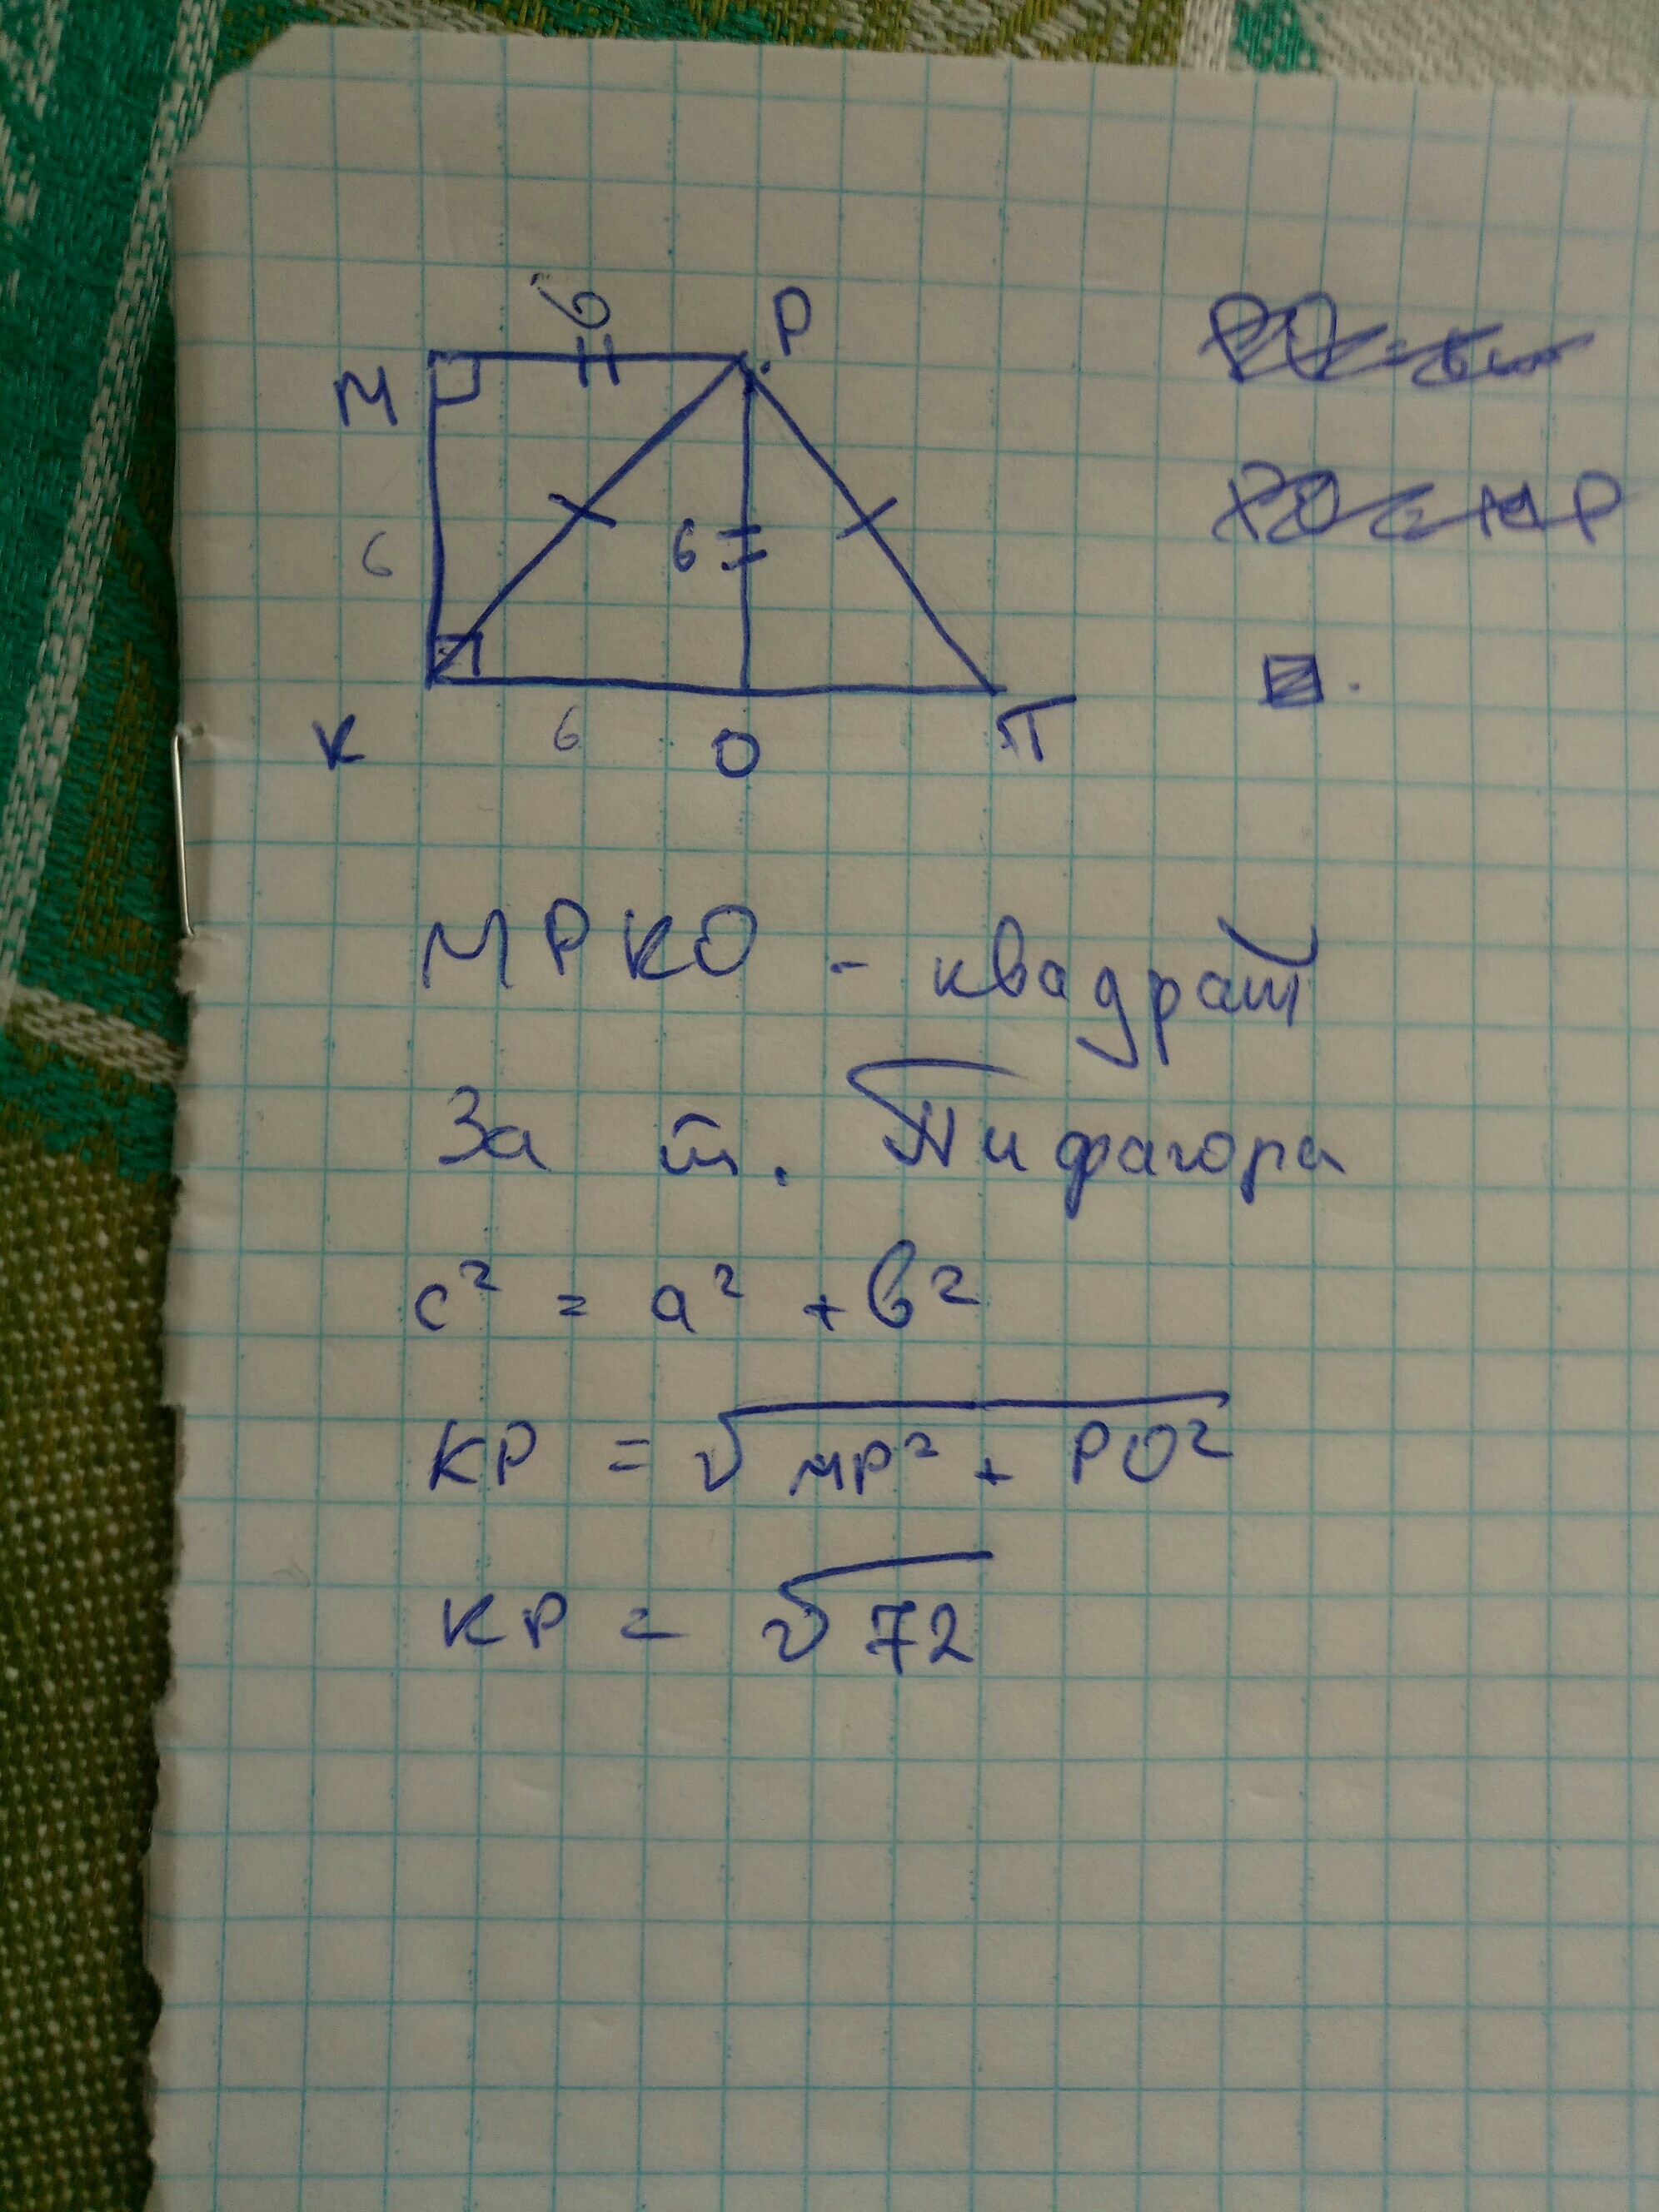 6
P
M
6
6
K
6
O
T
PO = MP
МРКО - квадрат
За т. Пифагора
c² = a² + b²
KP = √MP² + PO²
KP = √72